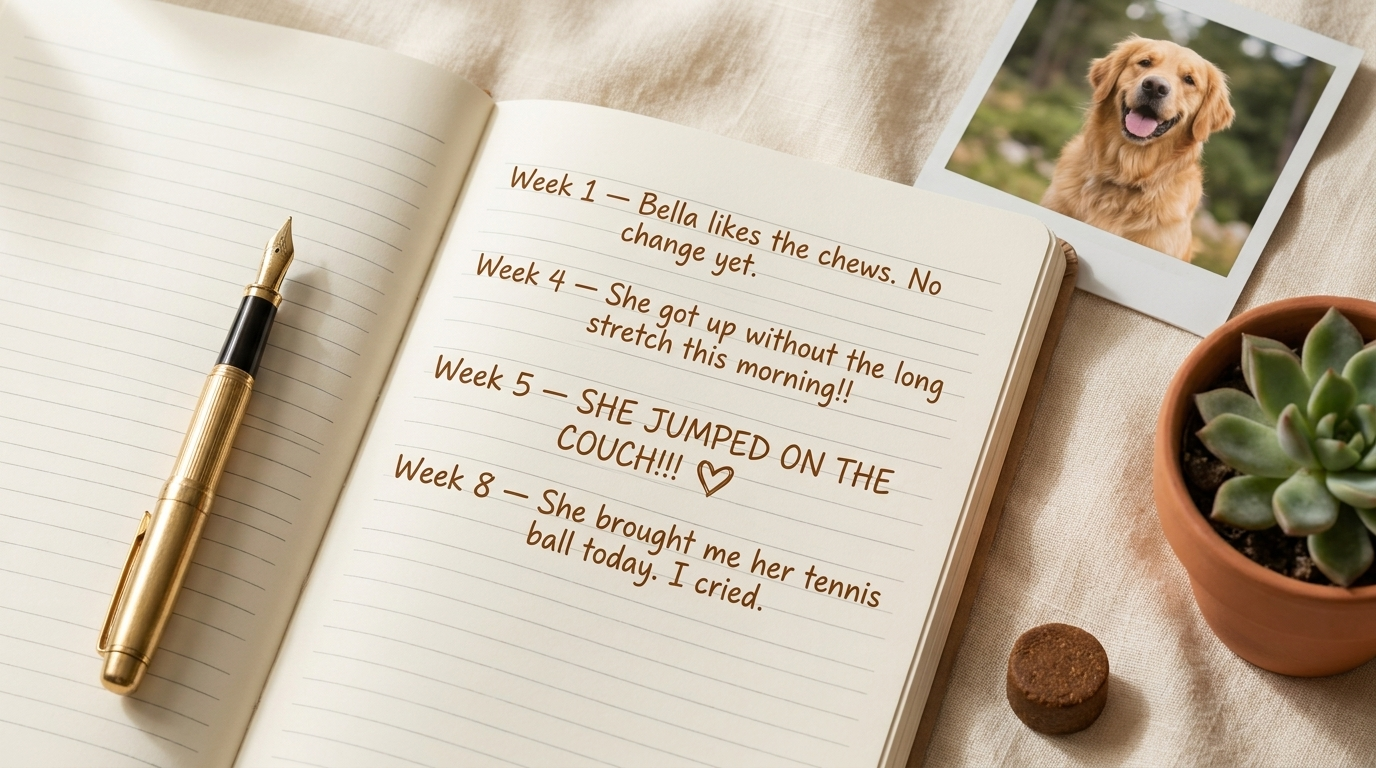 Week 1 — Bella likes the chews. No
change yet.
Week 4 — She got up without the long
stretch this morning!!
Week 5 — SHE JUMPED ON THE
COUCH!!! ♡
Week 8 — She brought me her tennis
ball today. I cried.